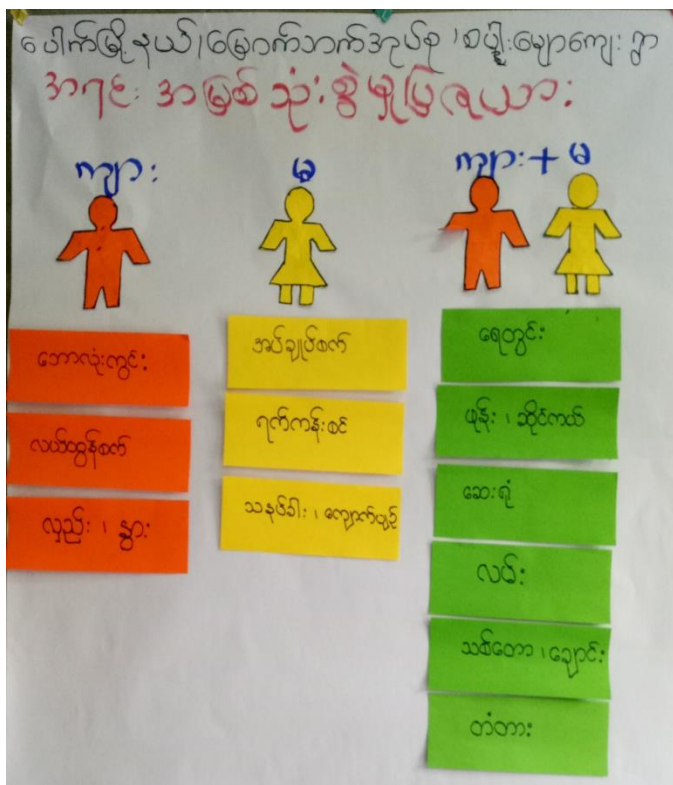 ပေါက်မြို့နယ်၊မြောက်ဘက်အုပ်စု၊စပါးမျောကျေးရွာ
အရင်းအမြစ်သုံးစွဲမှုပြဇယား
ကျား
မ
ကျား+မ
ဘောလုံးကွင်း
လယ်ထွန်စက်
လှည်း၊နွား
အပ်ချုပ်စက်
ရက်ကန်းစင်
သနပ်ခါး၊ကျောက်ပျဉ်
ရေတွင်း
ဖုန်း၊ဆိုင်ကယ်
ဆေးရုံ
လမ်း
သစ်တော၊ချောင်း
တံတား